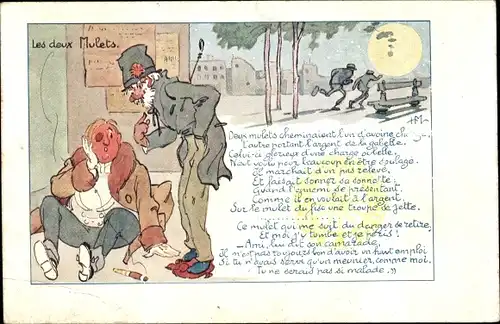 Les deux Mulets.
Deux mulets cheminaient l'un d'avoine
L'autre portant l'argent de la gabelle.
Celui-ci glorieux d'une charge si belle,
N'eut voulu pour beaucoup en être soulagé.
Il marchait d'un pas relevé,
Et faisait sonner sa sonnette:
Quand l'ennemi se présentant,
Comme il en voulait à l'argent,
Sur le mulet du fisc une troupe se jette,
Ce mulet qui me suit du danger se retire,
Et moi j'y tombe et je péris!
— Ami, lui dit son camarade,
Il n'est pas toujours bon d'avoir un haut emploi
Si tu n'avais servi qu'un meunier, comme moi,
Tu ne serais pas si malade."
HM